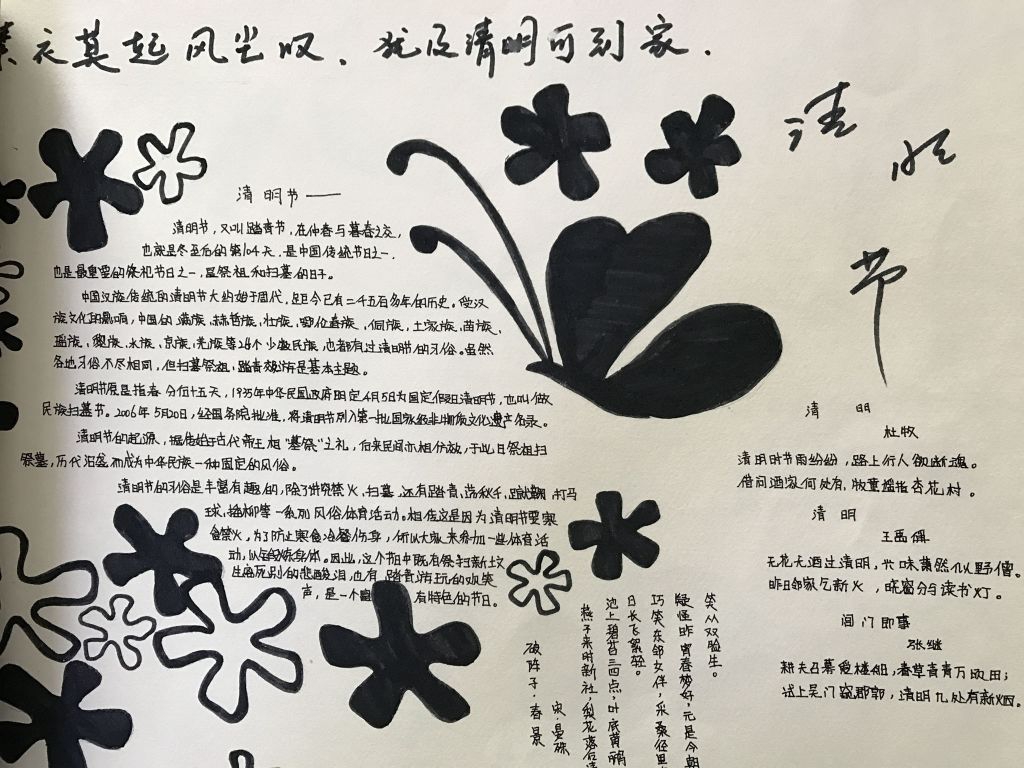 衣莫起风尘叹，犹及清明可到家．
清明节
清明节——
清明节，又叫踏青节，在仲春与暮春之交，
也就是冬至后的第104天．是中国传统节日之一，
也是最重要的祭祀节日之一，是祭祖和扫墓的日子。
中国汉族传统的清明节大约始于周代，距今已有二千五百多年的历史。受汉
族文化的影响，中国的满族、赫哲族、壮族、鄂伦春族、侗族、土家族、苗族、
瑶族、黎族、水族、京族、羌族等24个少数民族，也都有过清明节的习俗。虽然
各地习俗不尽相同，但扫墓祭祖、踏青郊游是基本主题。
清明节原是指春分后十五天，1935年中华民国政府明定4月5日为国定假日清明节，也叫做
民族扫墓节。2006年5月20日，经国务院批准，将清明节列入第一批国家级非物质文化遗产名录。
清明节的起源，据传始于古代帝王相“墓祭”之礼，后来民间亦相仿效，于此日祭祖扫
祭墓，历代沿益而成为中华民族一种固定的风俗。
清明节的习俗是丰富有趣的，除了讲究禁火、扫墓，还有踏青、荡秋千、蹴鞠、打马
球、插柳等一系列风俗体育活动。相传这是因为清明节要寒
食禁火，为了防止寒食冷餐伤身，所以大家来参加一些体育活
动，以锻炼身体。因此，这个节日中既有祭扫新坟
生离死别的悲酸泪，也有踏青游玩的欢笑
声，是一个 有特色的节日。
清明
杜牧
清明时节雨纷纷，路上行人欲断魂。
借问酒家何处有，牧童遥指杏花村。
清明
王禹偁
无花无酒过清明，兴味萧然似野僧。
昨日邻家乞新火，晓窗分与读书灯。
闾门即事
张继
耕夫召募爱楼船，春草青青万顷田；
试上吴门窥郡郭，清明几处有新烟。
破阵子·春景
宋·晏殊
燕子来时新社，梨花落后清
池上碧苔三四点，叶底黄鹂
日长飞絮轻。
巧笑东邻女伴，采桑径里
疑怪昨宵春梦好，元是今朝
笑从双脸生。